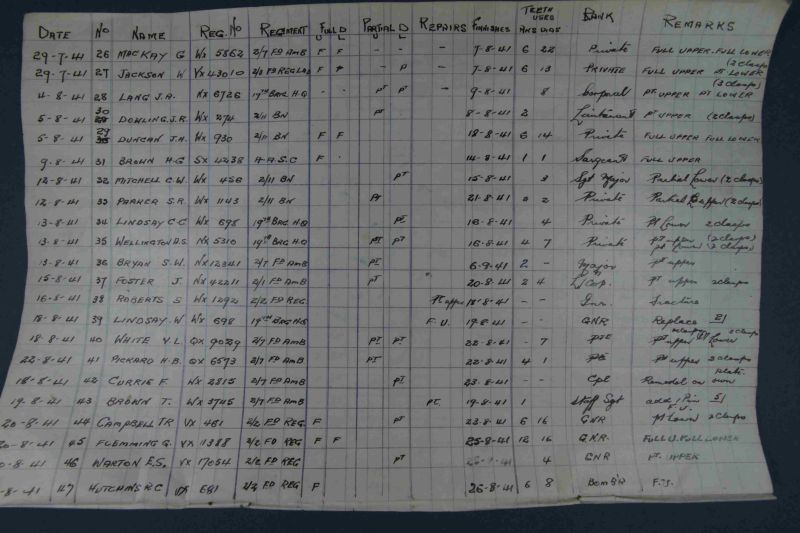 DATE No NAME REG.No REGIMENT FULL D U L PARTIAL D U L REPAIRS FINISHES TEETH USED ANS DIGS RANK REMARKS
29-7-41 26 MACKAY G WX 5862 2/7 FD AMB F F - - - 7-8-41 6 22 Private FULL UPPER. FULL LOWER
29-7-41 27 JACKSON W VX 43010 F P - P - 7-8-41 6 13 PRIVATE FULL UPPER PT LOWER (2 clasps)
4-8-41 28 LANG J.A. NX 6726 19TH BRG. H.Q - - PT PT - 9-8-41 8 Corporal PT UPPER PT LOWER (3 clasps)
5-8-41 30 DOWLING J.R. WX 274 2/11 BN PT 8-8-41 2 Lieutenant PT UPPER (2 clasps)
5-8-41 29 DUNCAN J.H. WX 930 2/11 BN F F 18-8-41 6 14 Private FULL UPPER FULL LOWER
9-8-41 31 BROWN H.G SX 4238 A.A.S.C F - 14-8-41 1 1 Sargeant FULL UPPER
12-8-41 32 MITCHELL C.W. WX 456 2/11 BN PT 15-8-41 3 Sgt Major Partial Lower (2 clasps)
12-8-41 33 PARKER S.R. WX 1143 2/11 BN PT 21-8-41 2 2 Private Partial Upper (2 clasps)
13-8-41 34 LINDSAY C.C WX 698 19TH BRG H.Q PT 16-8-41 4 Private Pt Lower 2 clasps
13-8-41 35 WELLINGTON A.S. NX 5310 19TH BRG. H.Q PT PT 16-8-41 4 7 Private pt upper (2 clasps) pt lower (2 clasps)
13-8-41 36 BRYAN S.W. NX 12341 2/7 FD AMB PT 6-9-41 2 - Major pt upper
15-8-41 37 FOSTER J. NX 42211 2/1 FD AMB PT 20-8-41 2 4 L/Cop. pt upper 2 clasps
16-8-41 38 ROBERTS S WX 1292 2/2 FD REG Pt upper 18-8-41 - - Gnr. Fracture
18-8-41 39 LINDSAY. W WX 698 19TH BRG H.Q F.U. 19-8-41 - - GNR Replace 2|
18-8-41 40 WHITE V.L. QX 2/7 FD AMB PT PT 22-8-41 - 7 PTE pt upper Lower 2 clasps
22-8-41 41 PICKARD H.B. QX 6573 2/7 FD AMB PT 22-8-41 4 1 Pte Pt upper 3 clasps
18-8-41 42 CURRIE F. WX 2815 2/7 FD AMB PT 23-8-41 - - Cpl Remodel on own plate
19.8-41 43 BROWN T. WX 3745 2/7 FD AMB PT. 19-8-41 1 Staff Sgt add. Pin 5| F.U.
20-8-41 44 CAMPBELL T.R VX 461 2/2 FD REG F PT 23-8-41 6 16 GNR pt Lower 2 clasps
20-8-41 45 FLEMMING G. VX 11388 2/2 FD REG F F 25-8-41 12 16 GNR. FULL U. FULL LOWER
0-8-41 46 WARTON E.S. VX 17054 2/2 FD REG PT 4 GNR PT. UPPER
-8-41 47 HUTCHINS R.C 681 2/3 FD REG F 26-8-41 6 8 BOMB'R